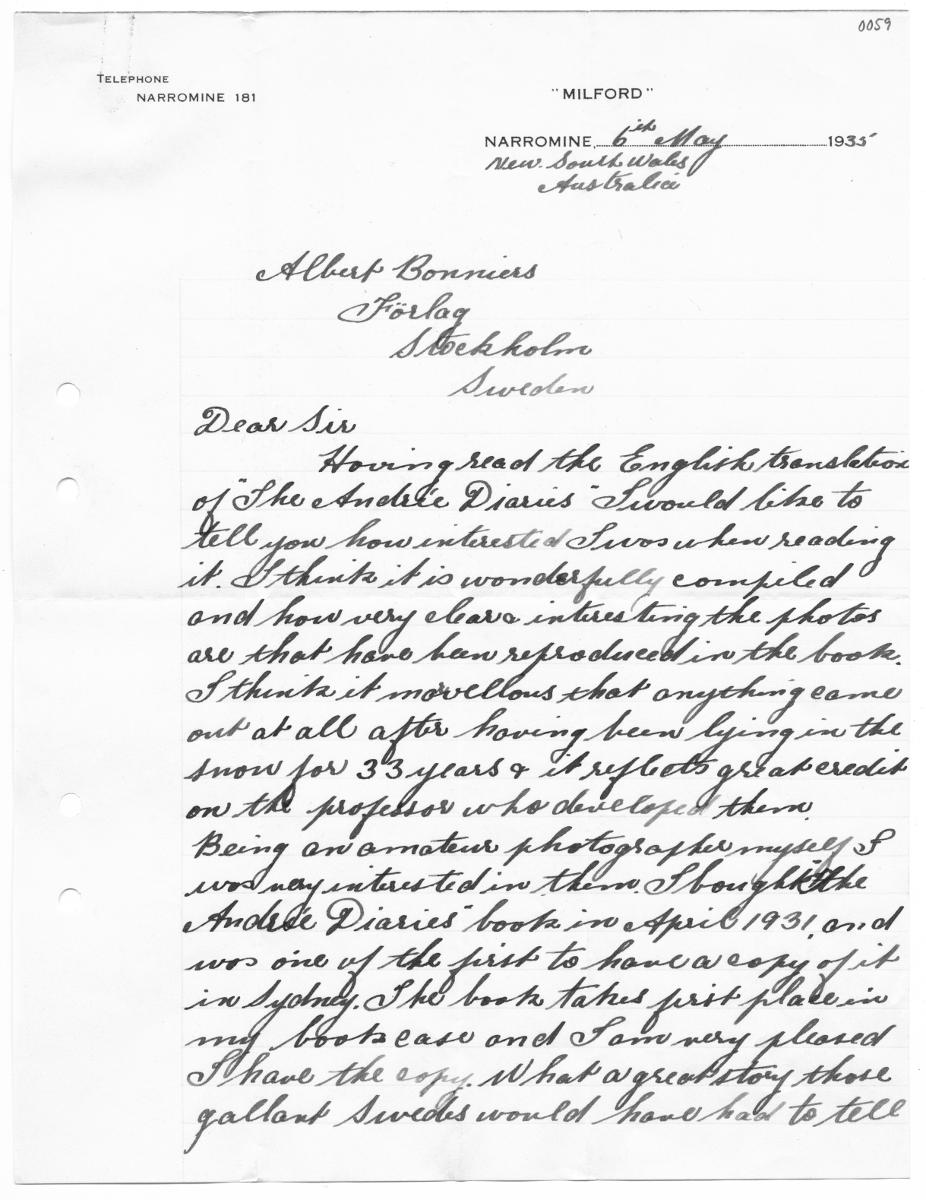 0059
TELEPHONE
NARROMINE 181
"MILFORD"
NARROMINE, 6th May 1935
New South Wales
Australia
Albert Bonniers
Förlag
Stockholm
Sweden
Dear Sir
Having read the English translation
of "The Andrée Diaries" I would like to
tell you how interested I was when reading
it. I think it is wonderfully compiled
and how very clear & interesting the photos
are that have been reproduced in the book.
I think it marvellous that anything came
out at all after having been lying in the
snow for 33 years & it reflects great credit
on the professor who developed them.
Being an amateur photographer myself I
was very interested in them. I bought "The
Andrée Diaries" book in April 1931, and
was one of the first to have a copy of it
in Sydney. The book takes first place in
my bookcase and I am very pleased
I have the copy. What a great story those
gallant Swedes would have had to tell